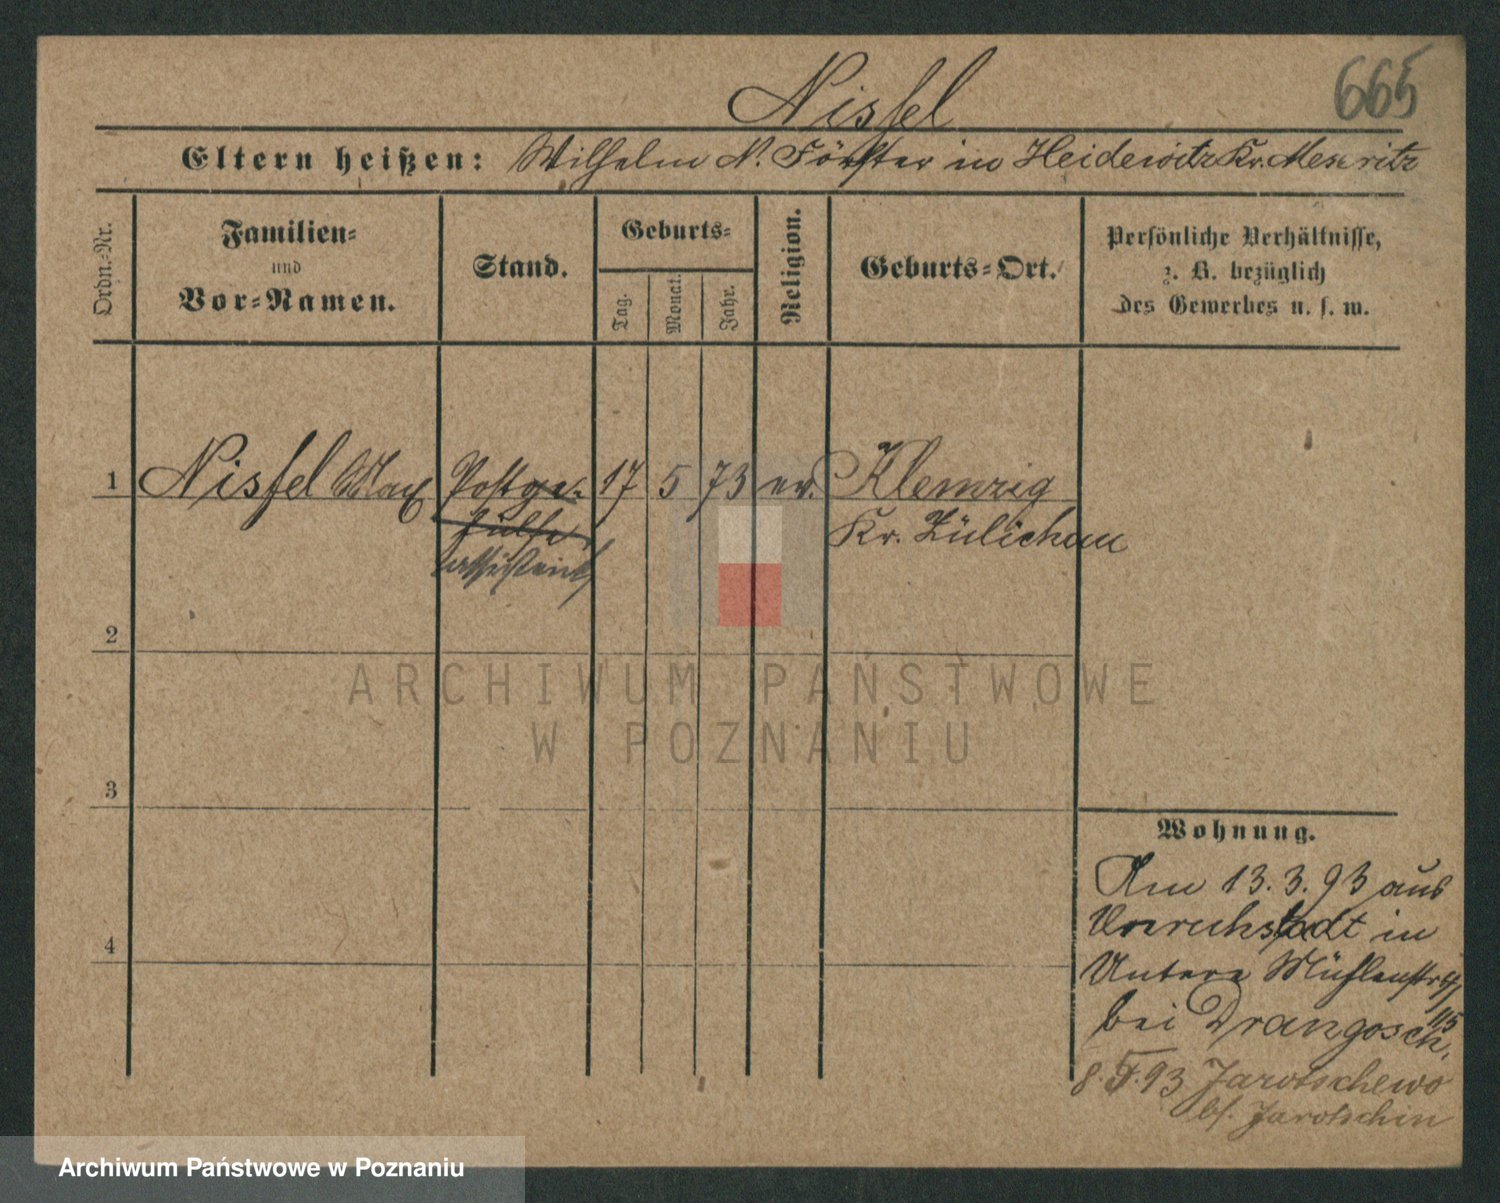 Nissel
665
Eltern heißen: Wilhelm N. Förster in Heidewitz Kr. Meseritz
Ordn.-Nr.
Familien-
und
Vor-Namen.
Stand.
Geburts-
Tag.
Monat.
Jahr.
Religion.
Geburts-Ort.
Persönliche Verhältnisse,
z. B. bezüglich
des Gewerbes u. s. w.
1 Nissel Max Postge- 17 5 73 ev. Klemzig
hülfe Kr. Züllichau
assistent
2
ARCHIWUM PAŃSTWOWE
W POZNANIU
3
Wohnung.
Am 13.3.93 aus
Unruhstadt in
Untere Mühlenstr
bei Drangosch.
4
8.5.93 Jarotschewo
b/. Jarotschin
Archiwum Państwowe w Poznaniu